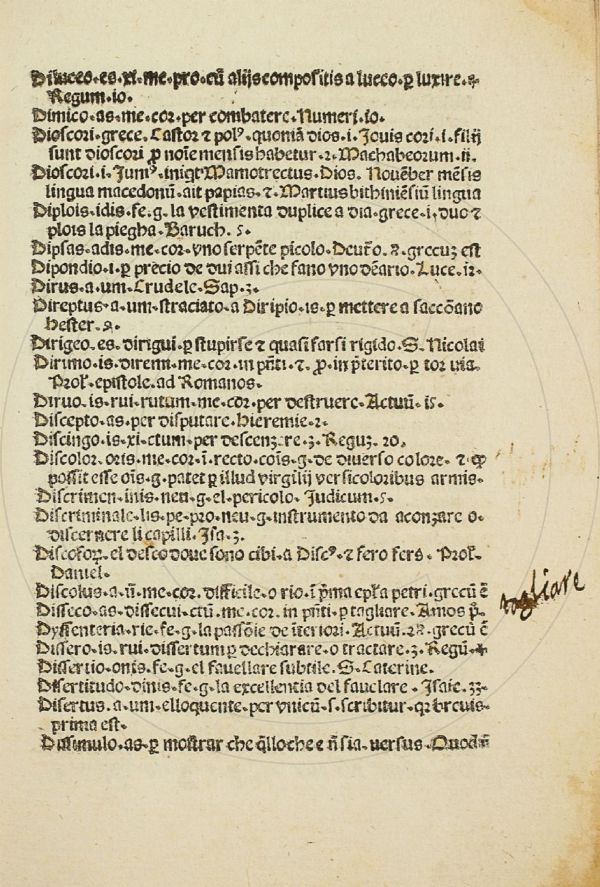 Diluceo.es.xi.me.pro.cũ alijs compositis a luceo.ꝑ luxire.4.
Regum.io.
Dimico.as.me.cor.per combatere.Numeri.io.
Dioscori.grece.Castor ⁊ polꝰ.quoniã dios.i.Jouis cori.i.filij
sunt dioscori ꝓ noĩe mensis habetur.2.Machabeorum.ii.
Dioscori.i.Junꝰ.inqt Mamotrectus.Dios.Nouẽber mẽsis
lingua macedonũ.ait papias.⁊.Martius bithiniẽsiũ lingua
Diplois.idis.fe.g.la vestimenta duplice a dia.grece.i.duo ⁊
plois la piegha.Baruch.5.
Dipsas.adis.me.cor.vno serpẽte picolo.Deut̃o.8.grecuꝫ est
Dipondio.i.ꝑ precio de dui assi che fano vno dẽario.Luce.12.
Dirus.a.um.Crudele.Sap.3.
Direptus.a.um.straciato.a Diripio.is.ꝑ mettere a saccõano
Hester.8.
Dirigeo.es.dirigui.ꝑ stupirse ⁊ quasi farsi rigido.S.Nicolai
Dirimo.is.diremi.me.cor.in pñti.⁊.ꝓ.in p̃terito.ꝑ tor via.
Prol̃.epistole.ad Romanos.
Diruo.is.rui.rutum.me.cor.per destruere.Actuũ.15.
Discepto.as.per disputare.Hieremie.2.
Discingo.is.xi.ctum.per descenzere.3.Reguꝫ.20.
Discolor.oris.me.cor.ĩ.recto.coĩs.g.de diverso colore.⁊.ꝙ
possit esse oĩs.g.patet ꝑ illud virgilij versicoloribus armis.
Discrimen.inis.neu.g.el.pericolo.Judicum.5.
Discriminale.lis.pe.pro.neu.g.instrumento da aconzare o.
discernere li capilli.Isa.3.
Discofoꝝ.el desco doue sono cibi.a Discꝰ.⁊ fero fers.Prol̃.
Daniel.
Discolus.a.ũ.me.cor.difficile.o rio.ĩ p̃ma ep̃la petri.grecũ ẽ
Disseco.as.dissecui.ctũ.me.cor.in pñti.ꝑ tagliare.Amos p̃.
tagliare
Dyssenteria.rie.fe.g.la passiõe de ĩteriori.Actuũ.28.grecũ ẽ
Dissero.is.rui.dissertum ꝑ dechiarare.o tractare.3.Regũ.4
Dissertio.onis.fe.g.el fauellare subtile.S.Caterine.
Disertitudo.dinis.fe.g.la excellentia del fauelare.Isaie.33.
Disertus.a.um.elloquente.per vnicũ.s.scribitur.qꝛ breuis.
prima est.
Dissimulo.as.ꝑ mostrar che q̃lloche e ñ sia.versus.Quod ñ